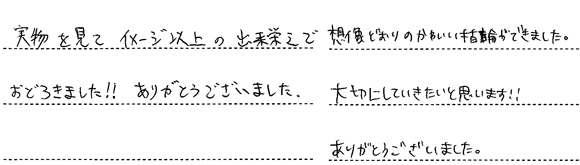 実物を見て イメージ以上の 出来栄えで
おどろきました!! ありがとうございました.
想像どおりのかわいい結婚指輪ができました。
大切にしていきたいと思います!!
ありがとうございました。